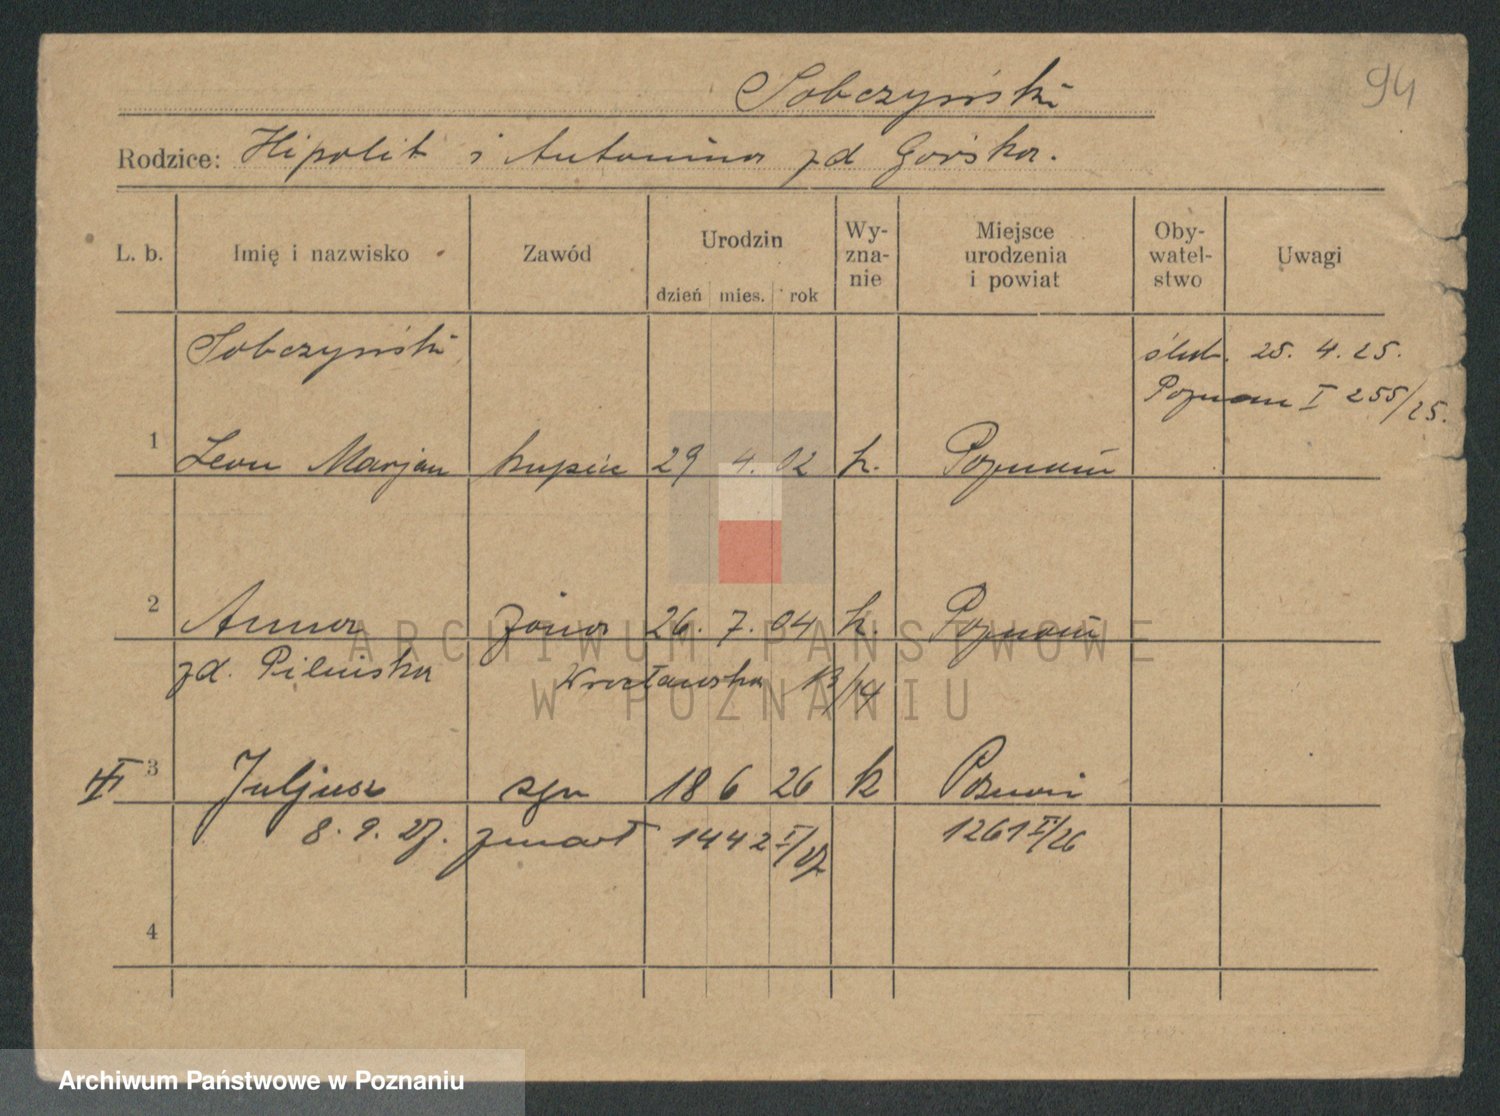 94
Sobczyński
Rodzice: Hipolit i Antonina zd Górska.
L. b. Imię i nazwisko Zawód Urodzin dzień mies. rok Wy-zna-nie Miejsce urodzenia i powiat Oby-watel-stwo Uwagi
Sobczyński ślub. 25. 4. 25.
Poznań I 255/25.
1 Leon Marjan kupiec 29 4. 02 k. Poznań
2 Anna żona 26. 7. 04 k. Poznań
zd. Pilińska Wrocławska 13/14
3 Juljusz syn 18 6 26 k Poznań
8. 9. 27. zmarł 1442 I/27 1261 II/26
4
ARCHIWUM PAŃSTWOWE
W POZNANIU
Archiwum Państwowe w Poznaniu